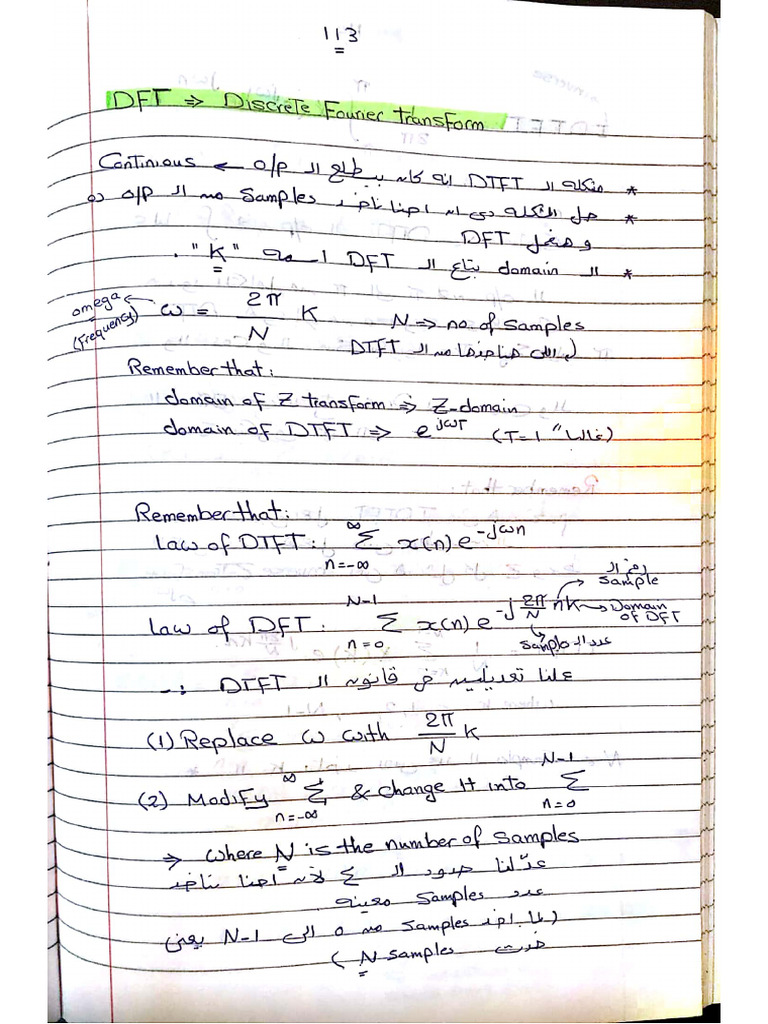 113
DFT ⇒ Discrete Fourier transform
* مشكلة ال DTFT انه كان بيطلع ال o/p ← Continious
* حل المشكلة دي انه احنا ناخد Samples من ال o/p ده
و هنعمل DFT
* ال domain بتاع ال DFT اسمه "K".
omega (frequency) ω = 2π/N K N ⇒ no. of samples
(اللى هناخدها من ال DTFT
Remember that:
domain of Z transform ⇒ Z-domain
domain of DTFT ⇒ e^jωT (T=1 "غالبا")
Remember that:
Law of DTFT: ∞ Σ n=-∞ x(n) e^-jωn
رمز ال sample
Law of DFT: N-1 Σ n=0 x(n) e^-j 2π/N nK → Domain of DFT
عدد ال sample
عملنا تعديلين في قانون ال DTFT :-
(1) Replace ω with 2π/N K
(2) Modify ∞ Σ n=-∞ & change it into N-1 Σ n=0
⇒ where N is the number of samples
عدّلنا حدود ال Σ لأن احنا بناخد
عدد samples معينة
(باخد samples من 0 الى N-1 يعنى
خدت N samples)